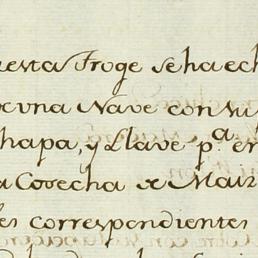 esta Troge se ha ech
ocuna Nave con su
chapa, y Llave p.ª en
a Cosecha de Maiz
es correspondientes